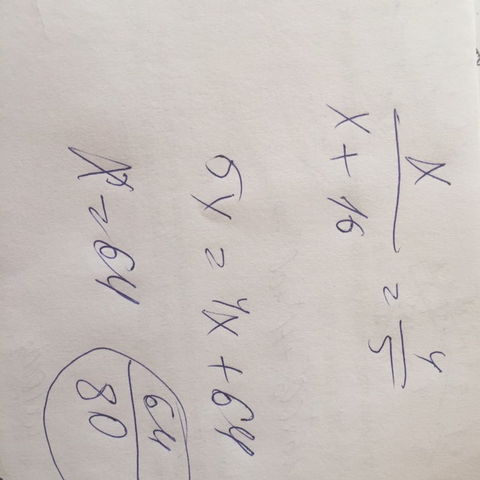 x / x + 16 = 4 / 5
5x = 4x + 64
x = 64
64 / 80